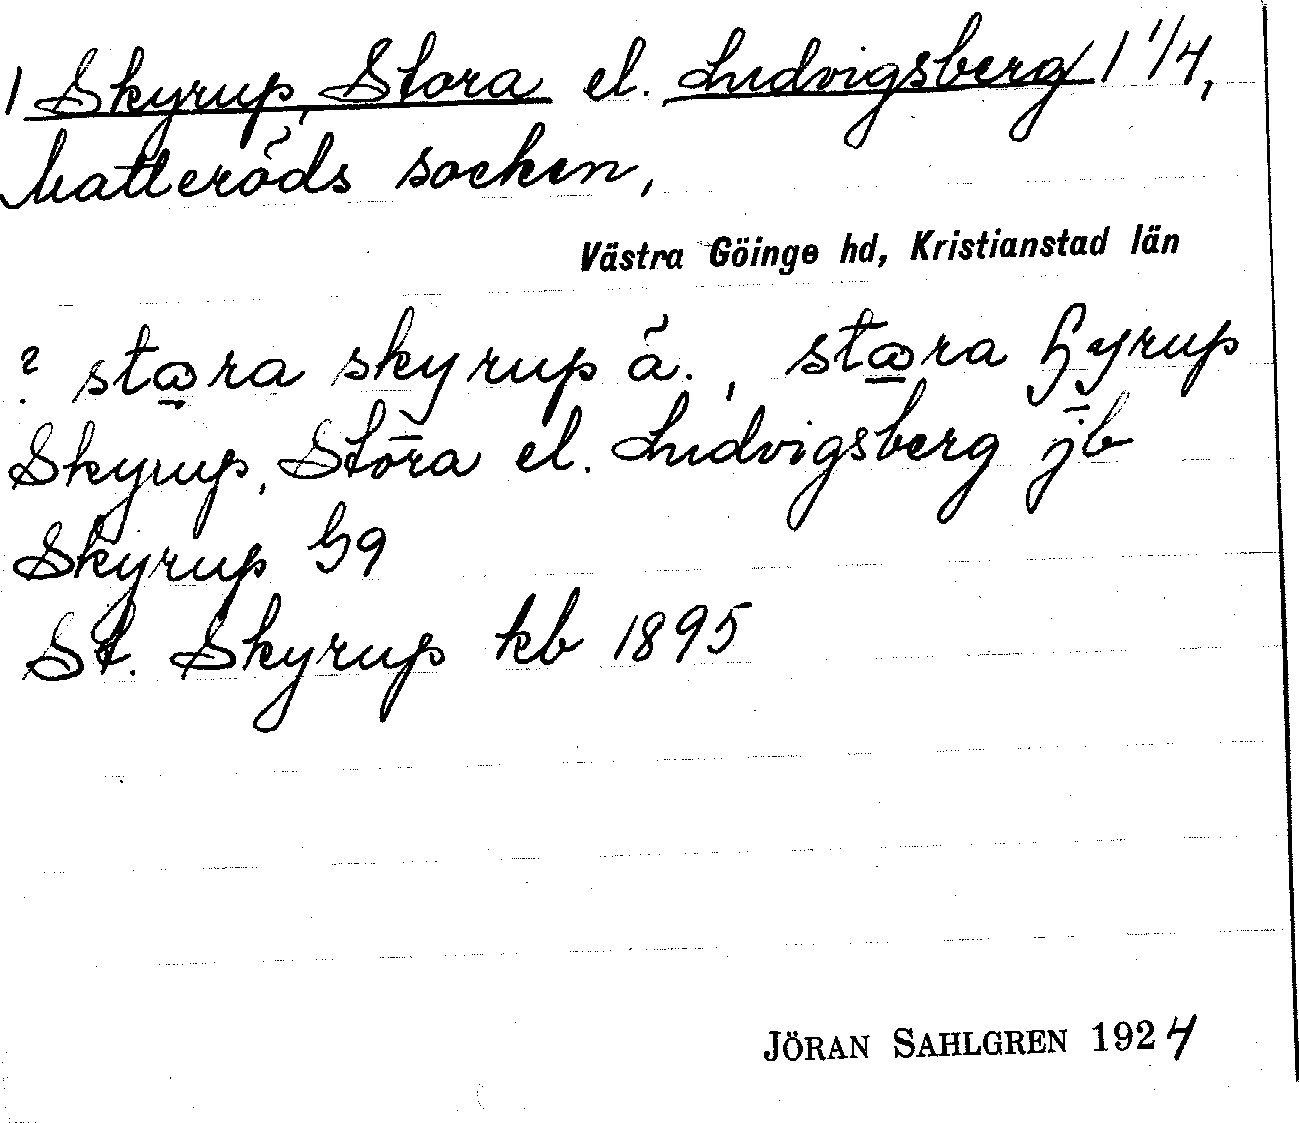 1 Skyrup, Stora el. Ludvigsberg 1 1/4,
Matteröds socken,
Västra Göinge hd, Kristianstad län
? stora skyrup ä., stora
Skyrup, Stora el. Ludvigsberg jb
Skyrup G9
St. Skyrup kb 1895
JÖRAN SAHLGREN 1924